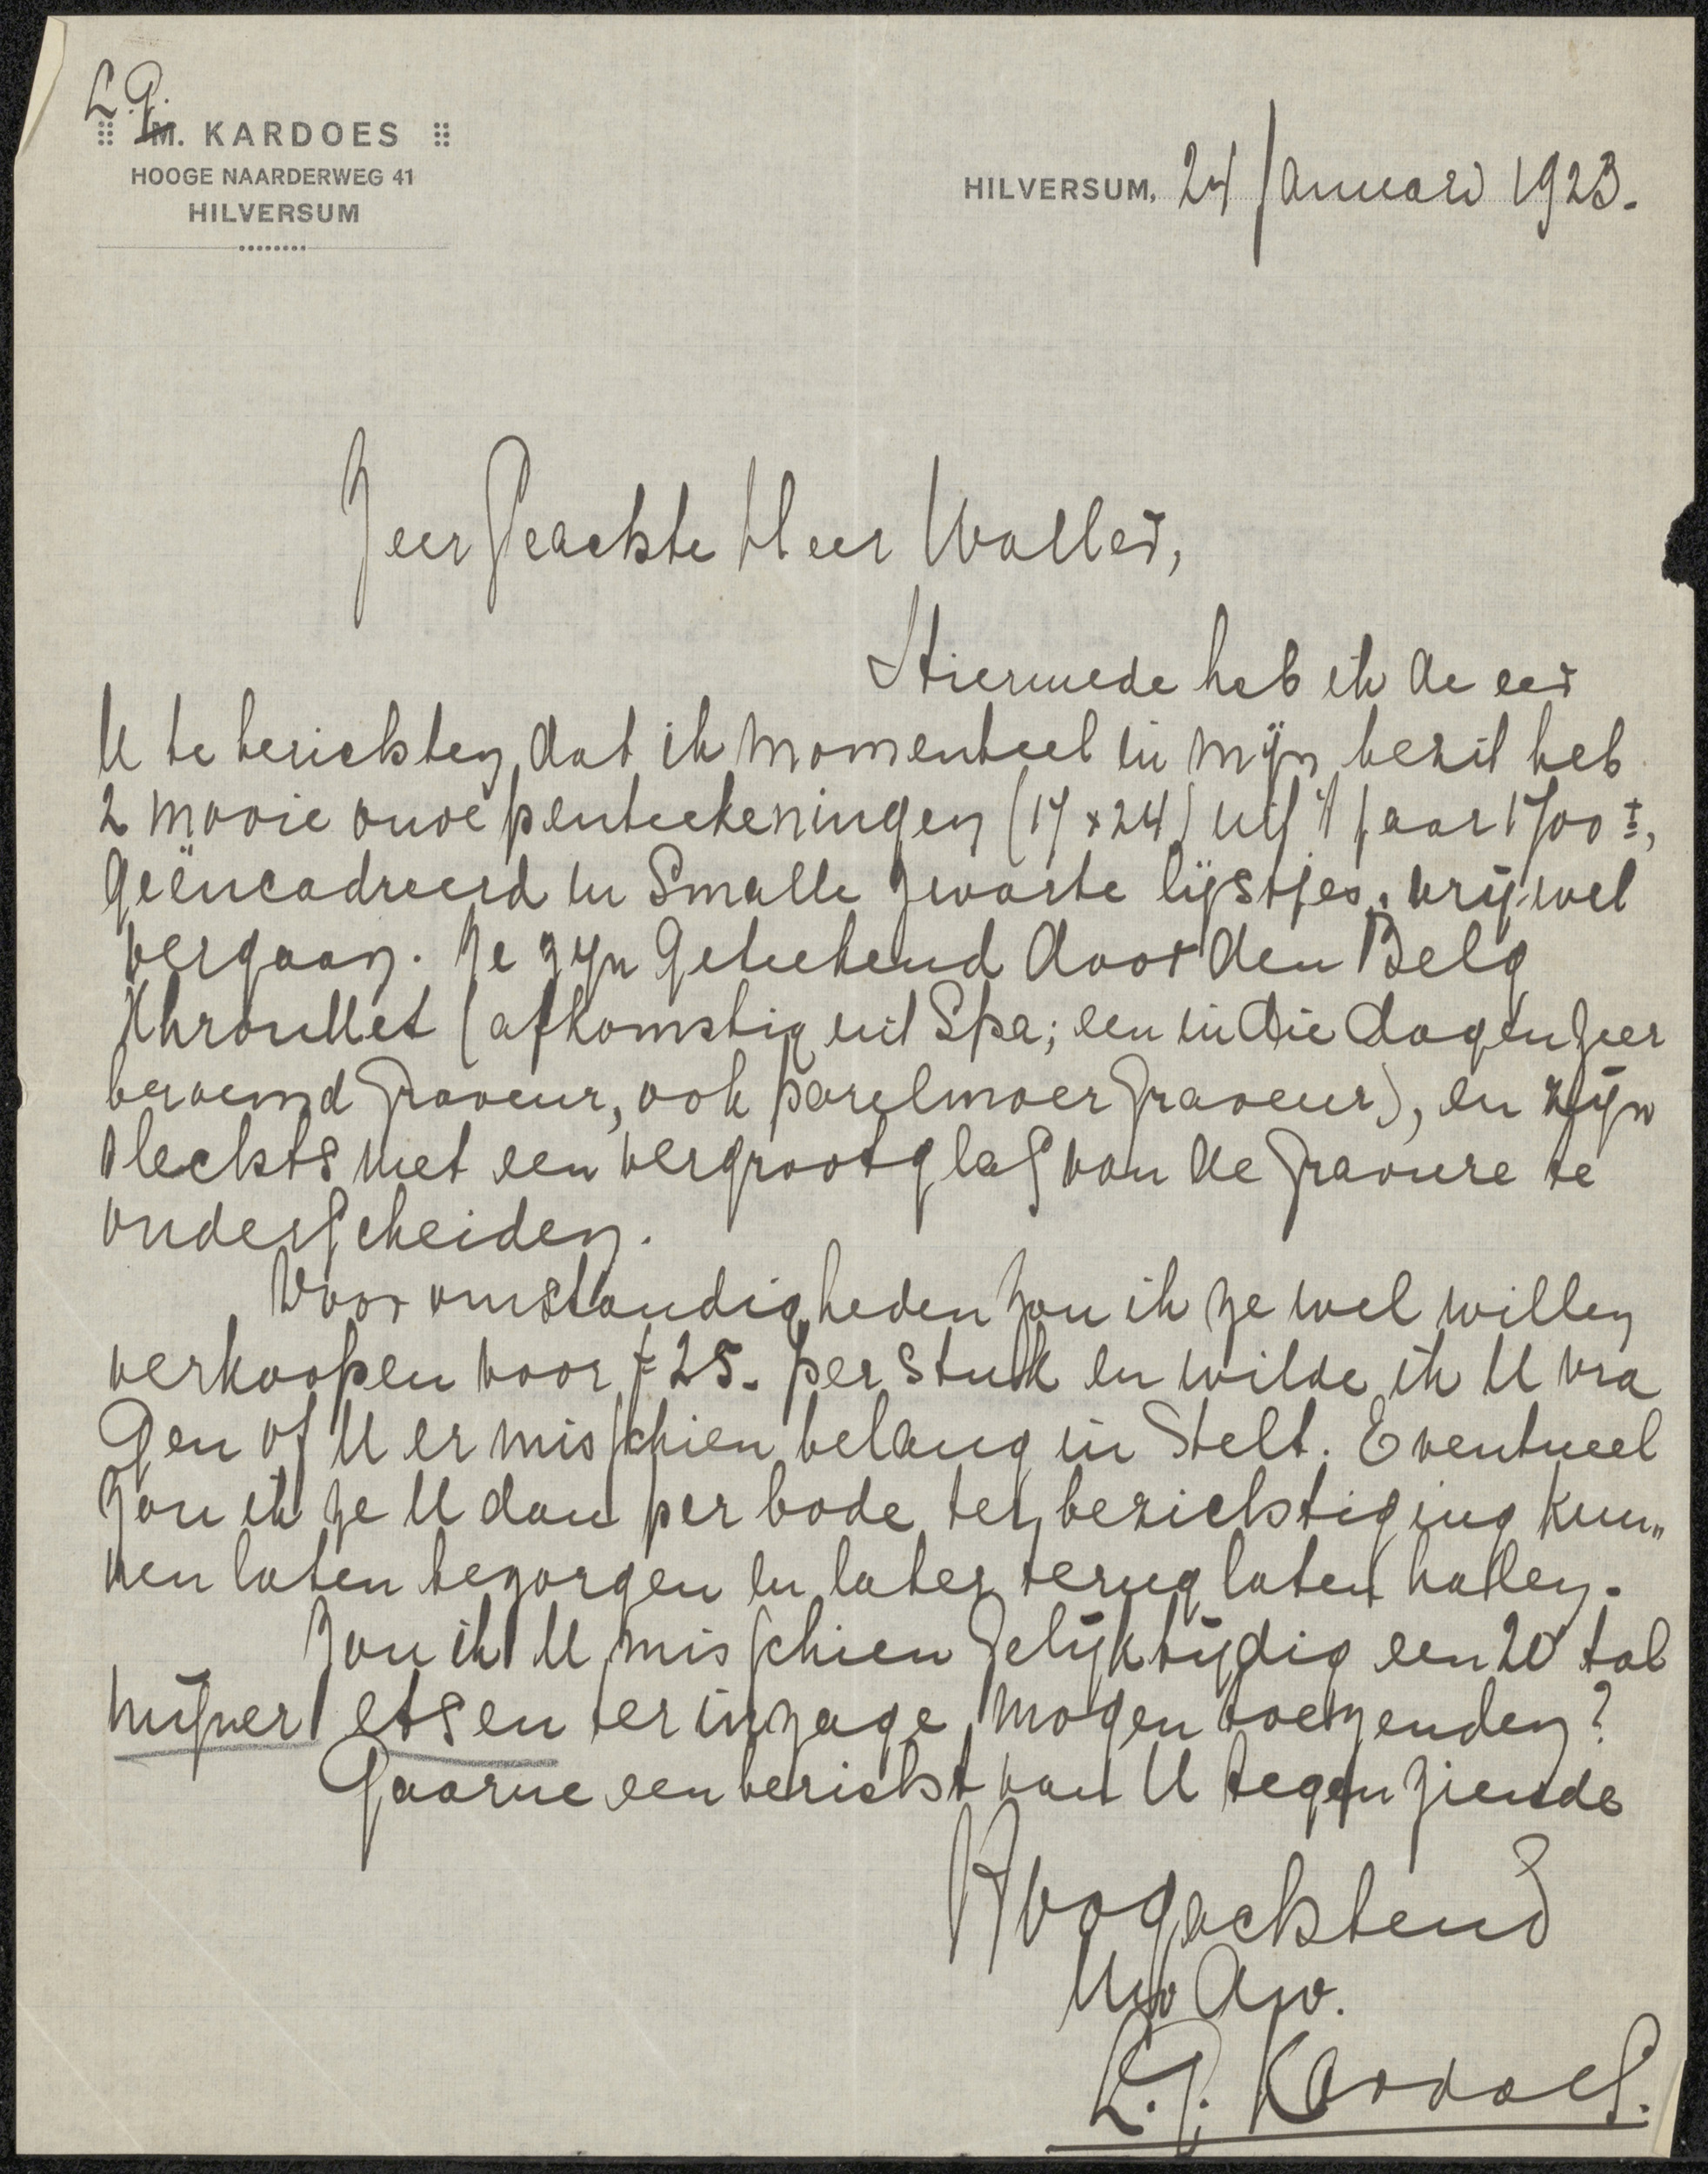 L.P.
M. KARDOES
HOOGE NAARDERWEG 41
HILVERSUM
HILVERSUM, 24 Januari 1923.
Zeer Geachte Heer Waller,
Hiermede heb ik de eer
U te berichten, dat ik momenteel in mijn bezit heb
2 mooie oude penteekeningen (17 x 24) uit 't jaar 1700 ±,
geëncadreerd in smalle zwarte lijstjes, vrijwel
vergaan. Ze zijn geteekend door den Belg
(afkomstig uit Spa; een in die dagen zeer
beroemd graveur, ook parelmoer graveur), en zijn
slechts met een vergrootglas van de gravure te
onderscheiden.
Door omstandigheden zou ik ze wel willen
verkoopen voor f 25.- per stuk en wilde ik U vra
gen of U er misschien belang in stelt. Eventueel
zou ik ze U dan per bode ter bezichtiging kun„
nen laten bezorgen en later terug laten halen.
Zou ik U misschien gelijktijdig een 20 tal
mijner etsen ter inzage mogen toezenden?
Gaarne een bericht van U tegenziende
Hoogachtend
Uw dw.
L.P. Kardoes.